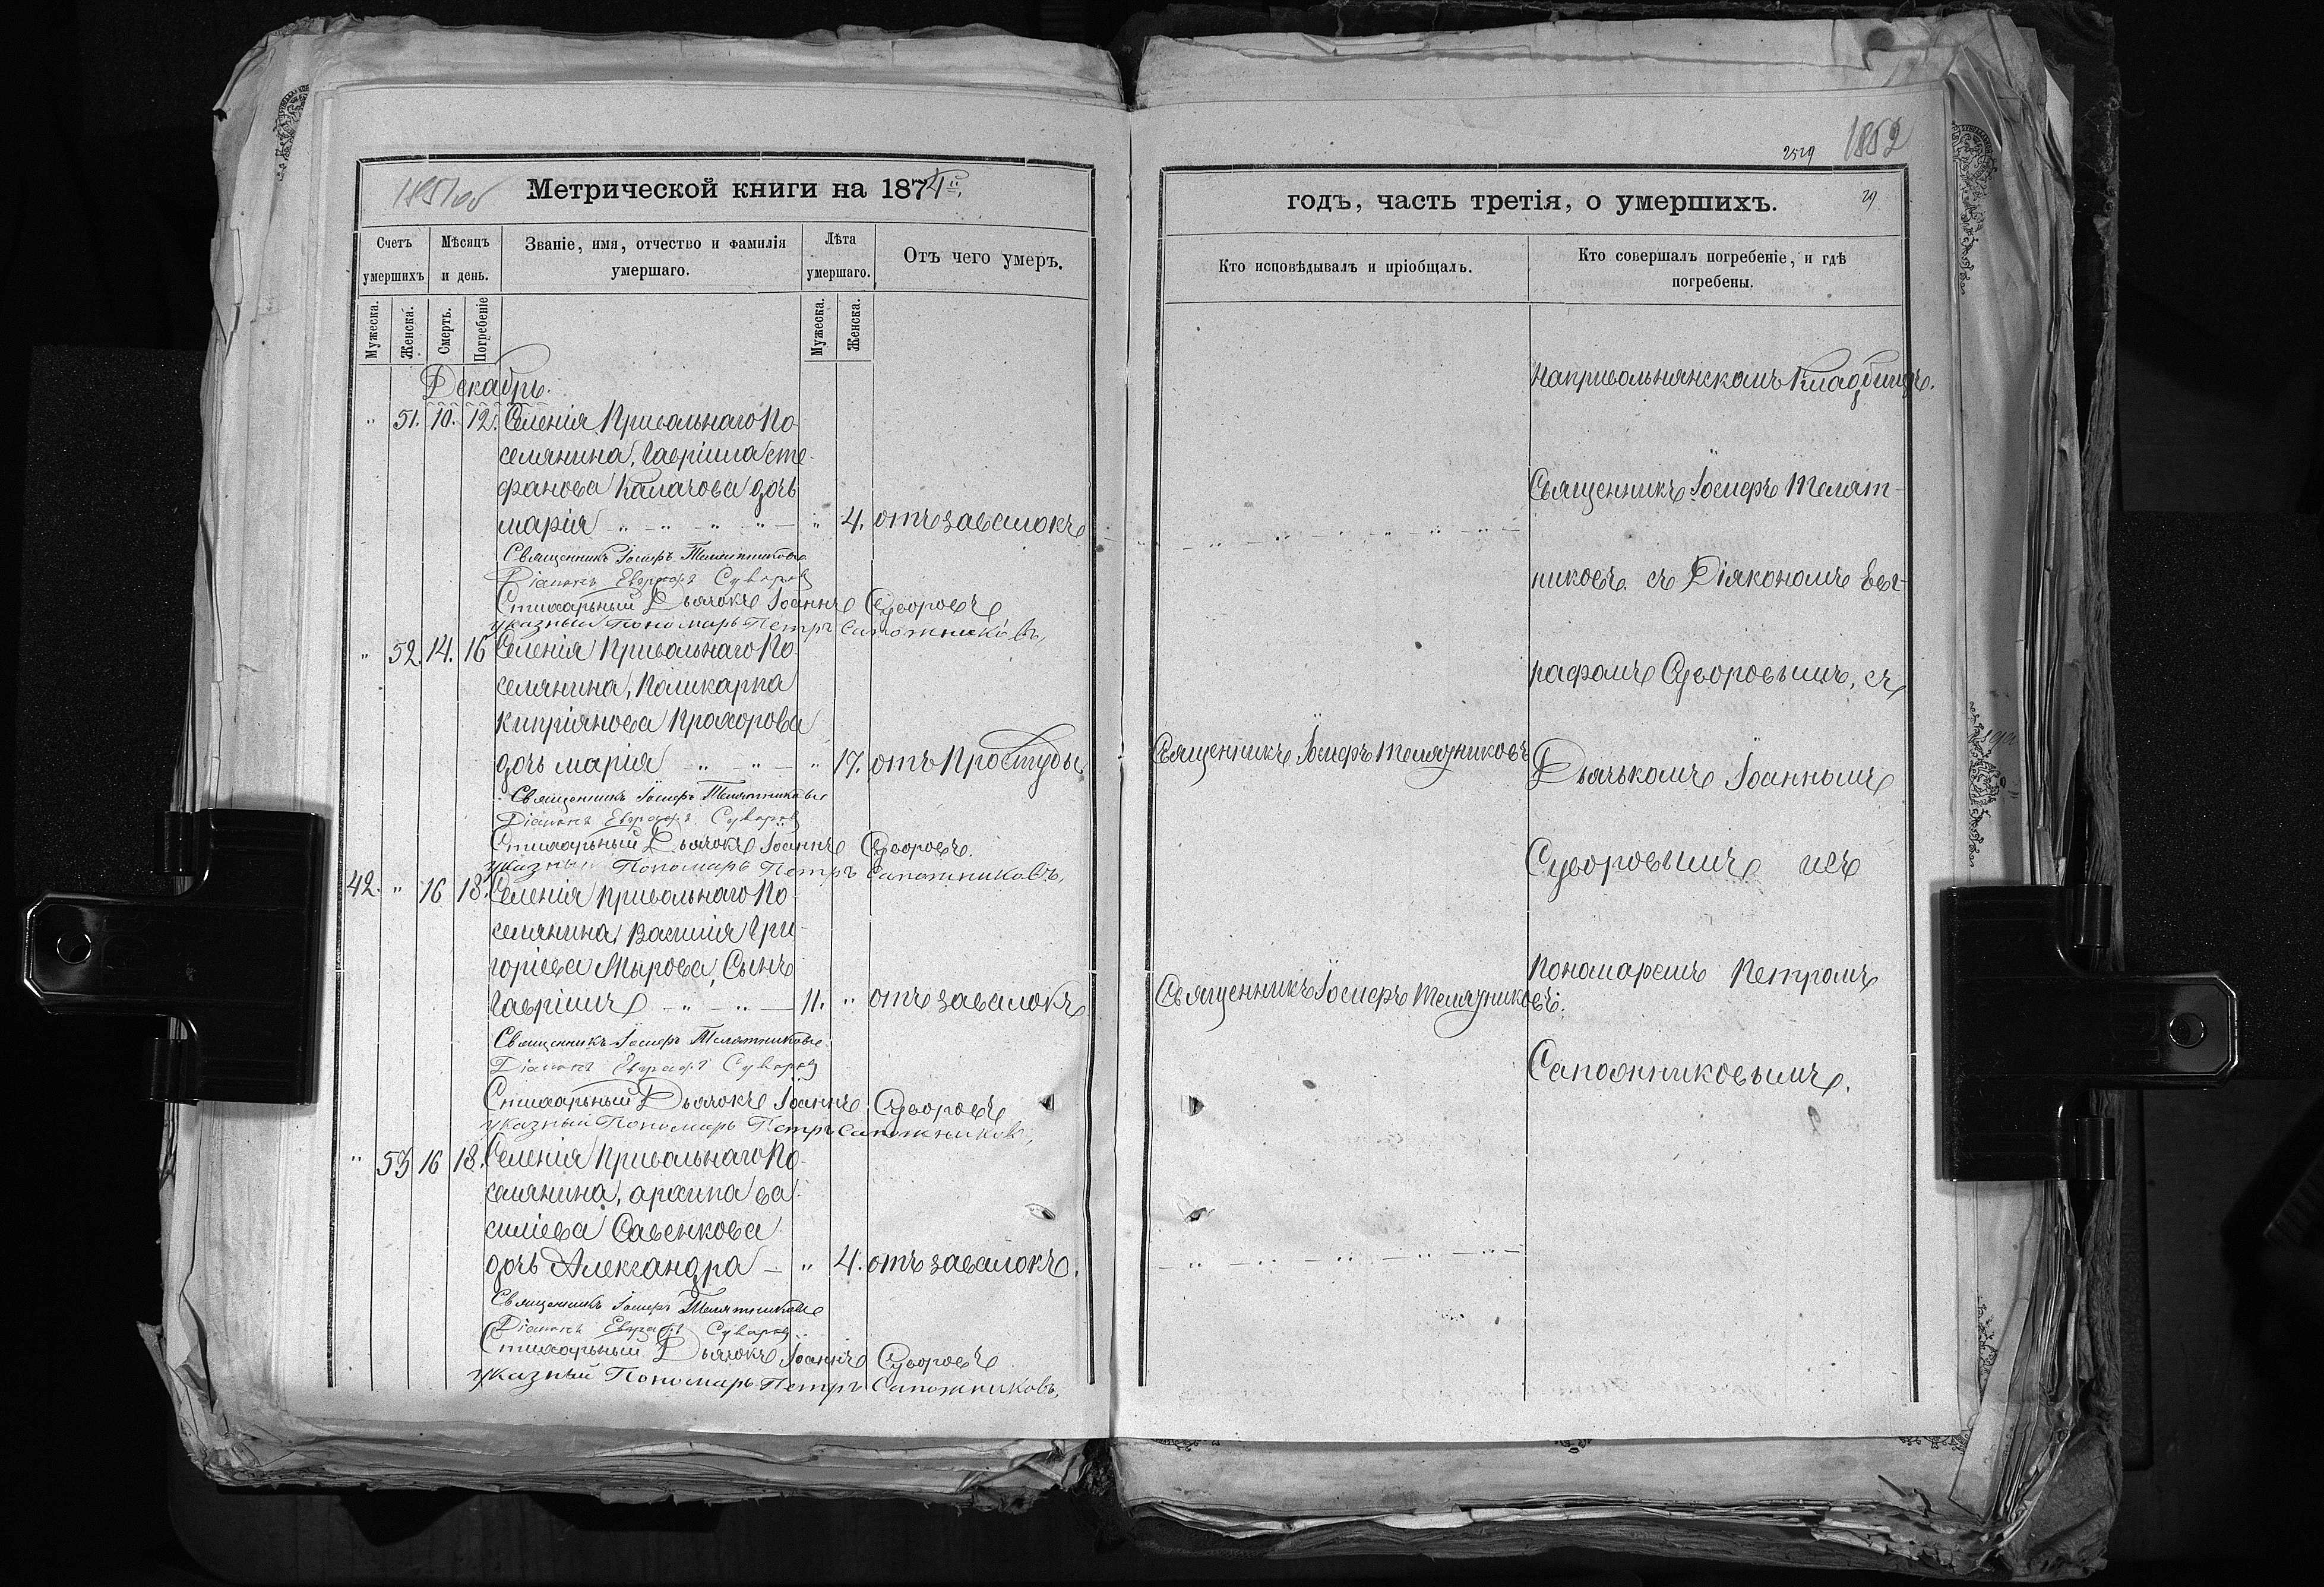 1851 об
Метрической книги на 1874й.
Счетъ умершихъ
Мѣсяцъ и день.
Званіе, имя, отчество и фамилія умершаго.
Лѣта умершаго.
Отъ чего умеръ.
Мужеска.
Женска.
Смерть.
Погребеніе
Мужеска.
Женска.
Декабрь.
" 51. 10. 12. Селенія Привольнаго По-
селянина, Гавріила сте-
фанова Калачова дочь
марія " 4. отъ завалокъ
Священникъ Іосифъ Телятниковъ
Діаконъ Евграфъ Суворов
Стихарный Дьячокъ Іоаннъ Суворовъ
указный Пономарь Петръ Сапожниковъ,
" 52. 14. 16 Селенія Привольнаго По-
селянина, Поликарпа
Кипріянова Прохорова
дочь марія " 17. отъ Простуды
Священникъ Іосифъ Телятниковъ
Діаконъ Евграфъ Суворов
Стихарный Дьячокъ Іоаннъ Суворовъ.
указный Пономарь Петръ Сапожниковъ,
42. " 16 18. Селенія Привольнаго По-
селянина, Василія Гри-
горіева Мырова, Сынъ
Гавріилъ 11. " отъ завалокъ
Священникъ Іосифъ Телятниковъ
Діаконъ Евграфъ Суворов
Стихарный Дьячокъ Іоаннъ Суворовъ
указный Пономарь Петръ Сапожников,
" 53 16 18. Селенія Привольнаго По-
селянина, архипа ва-
силіева Савенкова
дочь Александра " 4. отъ завалокъ.
Священникъ Іосифъ Телятниковъ
Діаконъ Евграфъ Суворов
Стихарный Дьячокъ Іоаннъ Суворовъ
указный Пономарь Петръ Сапожниковъ,
2529 1852
годъ, часть третія, о умершихъ.
29
Кто исповѣдывалъ и пріобщалъ.
Кто совершалъ погребеніе, и гдѣ погребены.
Напривольнянскомъ Кладбищѣ.
Священникъ Іосифъ Телят-
никовъ. съ Діякономъ Евг-
рафомъ Суворовымъ, съ
Священникъ Іосифъ Телятниковъ
Дьячькомъ Іоанномъ
Суворовымъ исъ
Пономаремъ Петромъ
Священникъ Іосифъ Телятниковъ.
Сапожниковымъ.